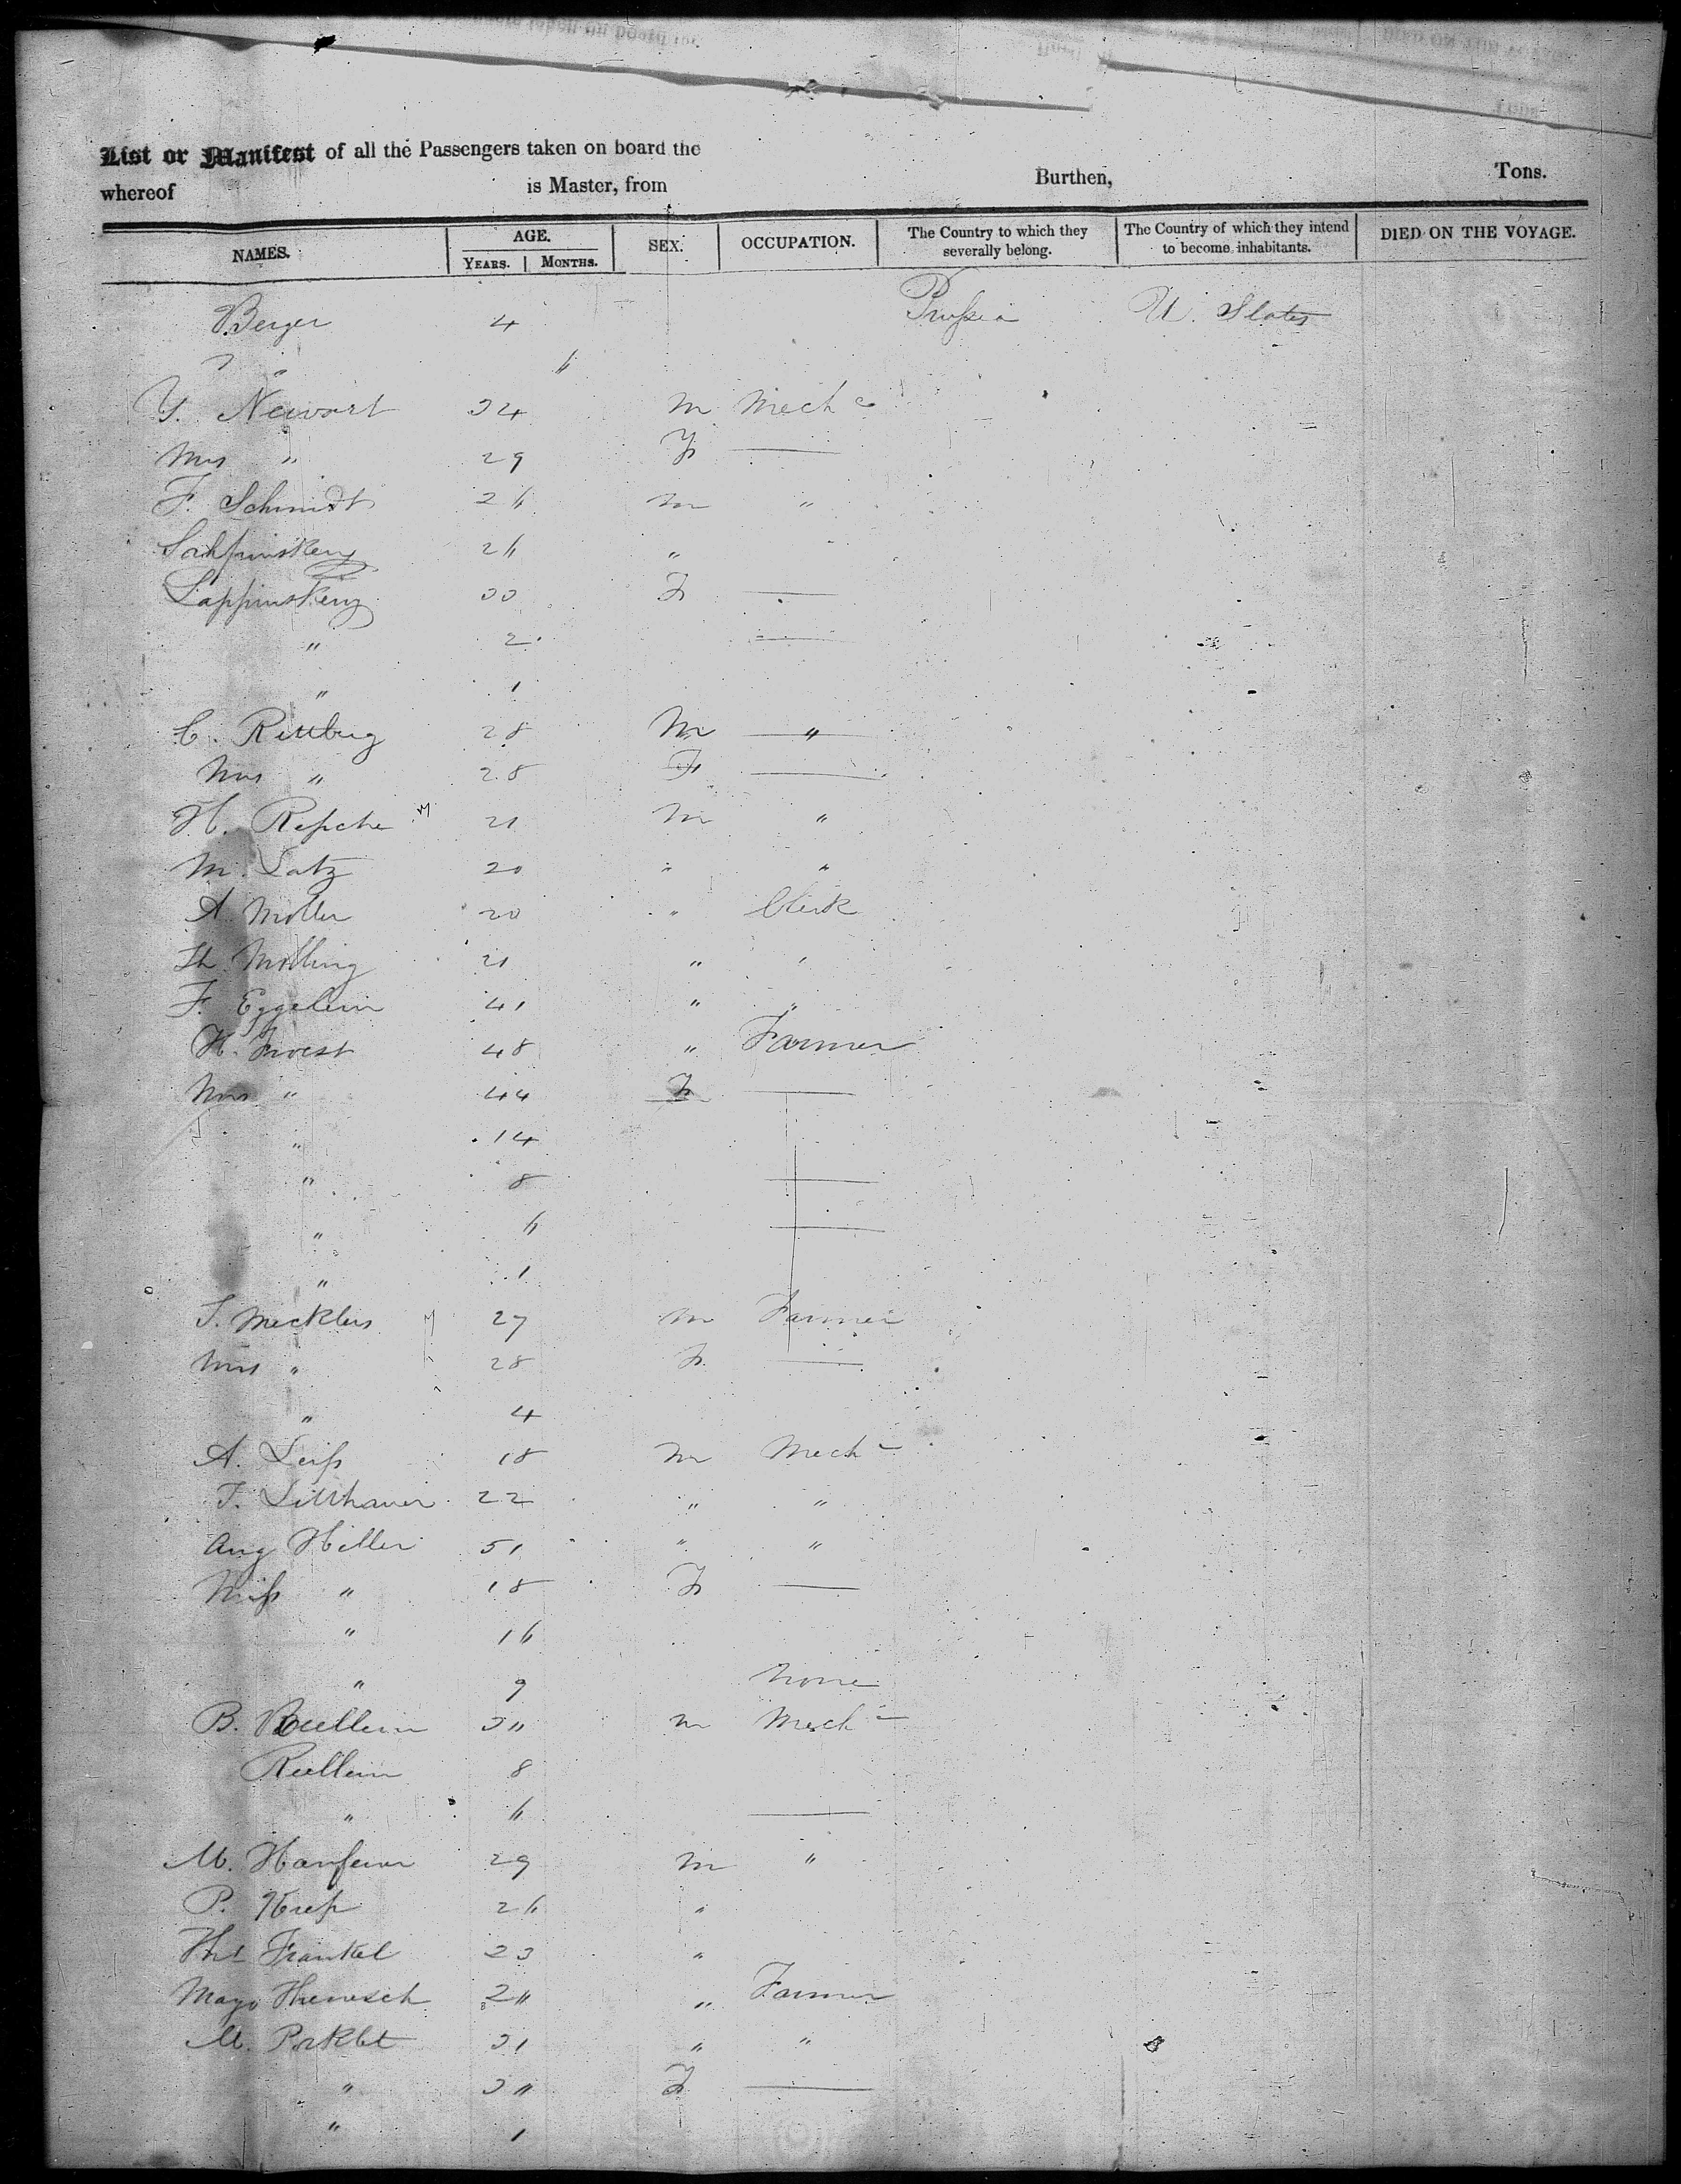 List or Manifest of all the Passengers taken on board the
whereof is Master, from Burthen, Tons.
NAMES. AGE. YEARS. MONTHS. SEX. OCCUPATION. The Country to which they severally belong. The Country of which they intend to become inhabitants. DIED ON THE VOYAGE.
Berger 4 Prussia U. States
" 6
Y. Newart 34 M Mech c
Mrs " 29 F —
F. Schmidt 26 m "
26 "
Lappinskeny 33 F —
" 2 —
" 1
C. Rittberg 28 M "
Mrs " 28 F —
H. Repche 21 M "
M. Latz 20 " "
A. Moller 20 " Clerk
Th. Milling 21 " "
F. Eggelein 41 " "
H. Froest 48 " Farmer
Mrs " 44 F —
" 14
" 8 —
" 6 —
" 1
S. Mecklers 27 m Farmer
Mrs " 28 F. —
" 4
A. Leiss 18 m Mech
T. Litthauer 22 " "
Aug Hiller 51 " "
Miss " 18 F —
" 16
" 9 None
B. Buellein 3" m Mech
Ruellein 8
" 6 —
M. 29 m "
P. 26 "
Ths Frankel 23 "
Mayo 2" " Farmer
M. Porklet 31 " "
" 3" F —
" 1